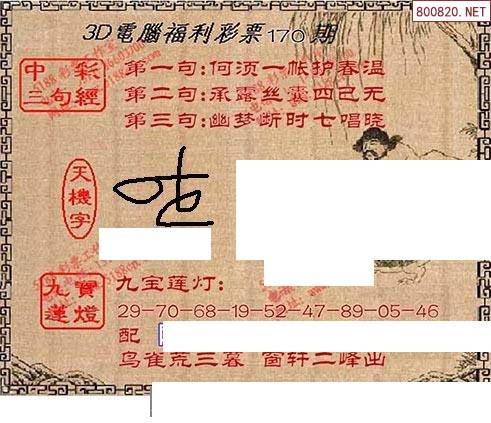 800820.NET
3D電腦福利彩票170期
中彩三句經
第一句:何须一帐护春温
第二句:承露丝囊四已无
第三句:幽梦断时七唱晓
天機字
九寶蓮燈
九宝莲灯:
29-70-68-19-52-47-89-05-46
配
鸟雀荒三暮 窗轩二峰出